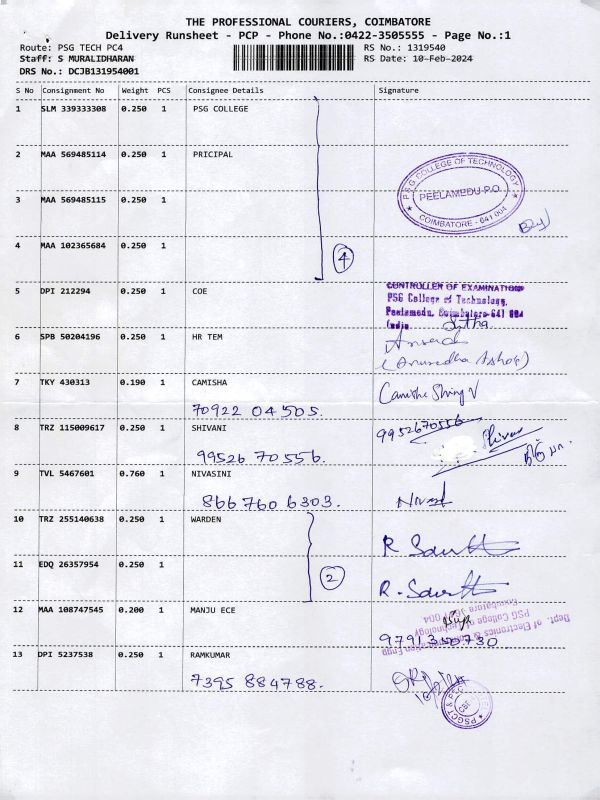 THE PROFESSIONAL COURIERS, COIMBATORE
Delivery Runsheet - PCP - Phone No.:0422-3505555 - Page No.:1
Route: PSG TECH PC4 RS No.: 1319540
Staff: S MURALIDHARAN RS Date: 10-Feb-2024
DRS No.: DCJB131954001
S No Consignment No Weight PCS Consignee Details Signature
1 SLM 339333308 0.250 1 PSG COLLEGE
2 MAA 569485114 0.250 1 PRICIPAL
PSG COLLEGE OF TECHNOLOGY
PEELAMEDU P.O.
COIMBATORE - 641 004
3 MAA 569485115 0.250 1
4 MAA 102365684 0.250 1
4
5 DPI 212294 0.250 1 COE
CONTROLLER OF EXAMINATIONS
PSG College of Technology,
Peelamedu, Coimbatore-641 004
India
6 SPB 50204196 0.250 1 HR TEM
(Anuredha Ashok)
7 TKY 430313 0.190 1 CAMISHA
70922 04505.
8 TRZ 115009617 0.250 1 SHIVANI
9952670556
99526 70556.
9 TVL 5467601 0.760 1 NIVASINI
866 760 6303.
10 TRZ 255140638 0.250 1 WARDEN
11 EDQ 26357954 0.250 1
2
12 MAA 108747545 0.200 1 MANJU ECE
Dept. of Electronics & Communication Engg
PSG College of Technology
Coimbatore
13 DPI 5237538 0.250 1 RAMKUMAR
7395 884788.